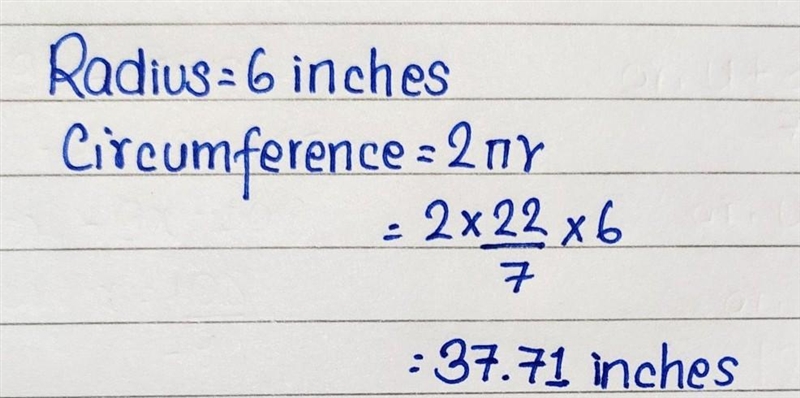 Radius = 6 inches
Circumference = 2πr
= 2 × 22/7 × 6
= 37.71 inches